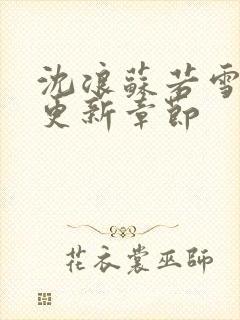 沈浪蘇若雪
更新章節
花衣裳巫師